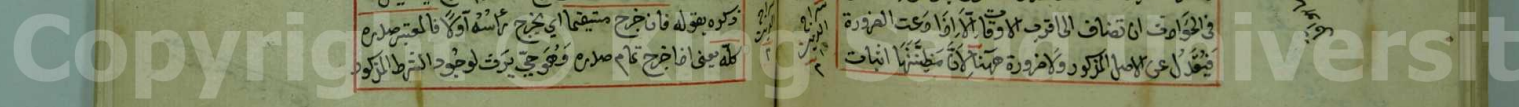 في الحوادث ان تضاف الى اقرب الاوقات الا اذا دعت الضرورة
فيعدل عن الاصل المذكور ولا ضرورة ههنا لان مظنتها اثبات
ذكره بقوله فان خرج مستقيما اي يخرج رأسه اولا فالمعتبر صدره
كله يعني اذا خرج تمام صدره وهو حي يرث لوجود الشرط المذكور